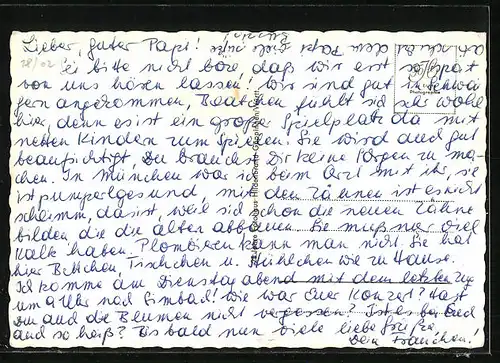 Lieber, guter Papi!
28/02
Sei bitte nicht böse, daß wir erst so spät
von uns hören lassen! Wir sind gut in
angekommen, Beatchen fühlt sich sehr wohl
hier, denn es ist ein großer Spielplatz da mit
netten Kindern zum Spielen. Sie wird auch gut
beaufsichtigt, Du brauchst Dir keine Sorgen zu ma-
chen. In München war ich beim Arzt mit ihr, sie
ist pumperlgesund, mit den Zähnen ist es nicht
schlimm, das ist, weil sich schon die neuen Zähne
bilden die die alten abbauen. Sie muß nur viel
Kalk haben. Plombieren kann man nicht. Sie hat
hier Bettchen, Tischchen u. Stühlchen wie zu Hause.
Ich komme am Dienstag abend mit dem letzten Zug
um aller nach Simbach! Wie war Euer Konzert? Hast
Du auch die Blumen nicht vergessen? Ist es bei Euch
auch so heiß? Bis bald nun viele liebe
Dein Frauchen!